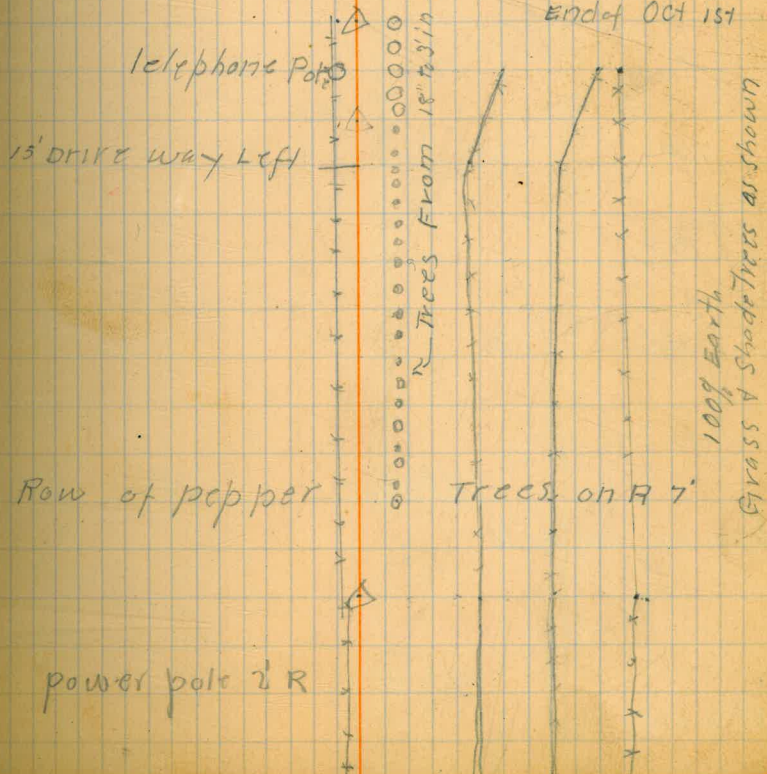 End of Oct 1st
Telephone Pole
15' Drive way Left
Trees From 18" to 3 in
100% Earth
Grass & Shade Trees as shown
Row of pepper Trees on R 7'
power pole 2' R